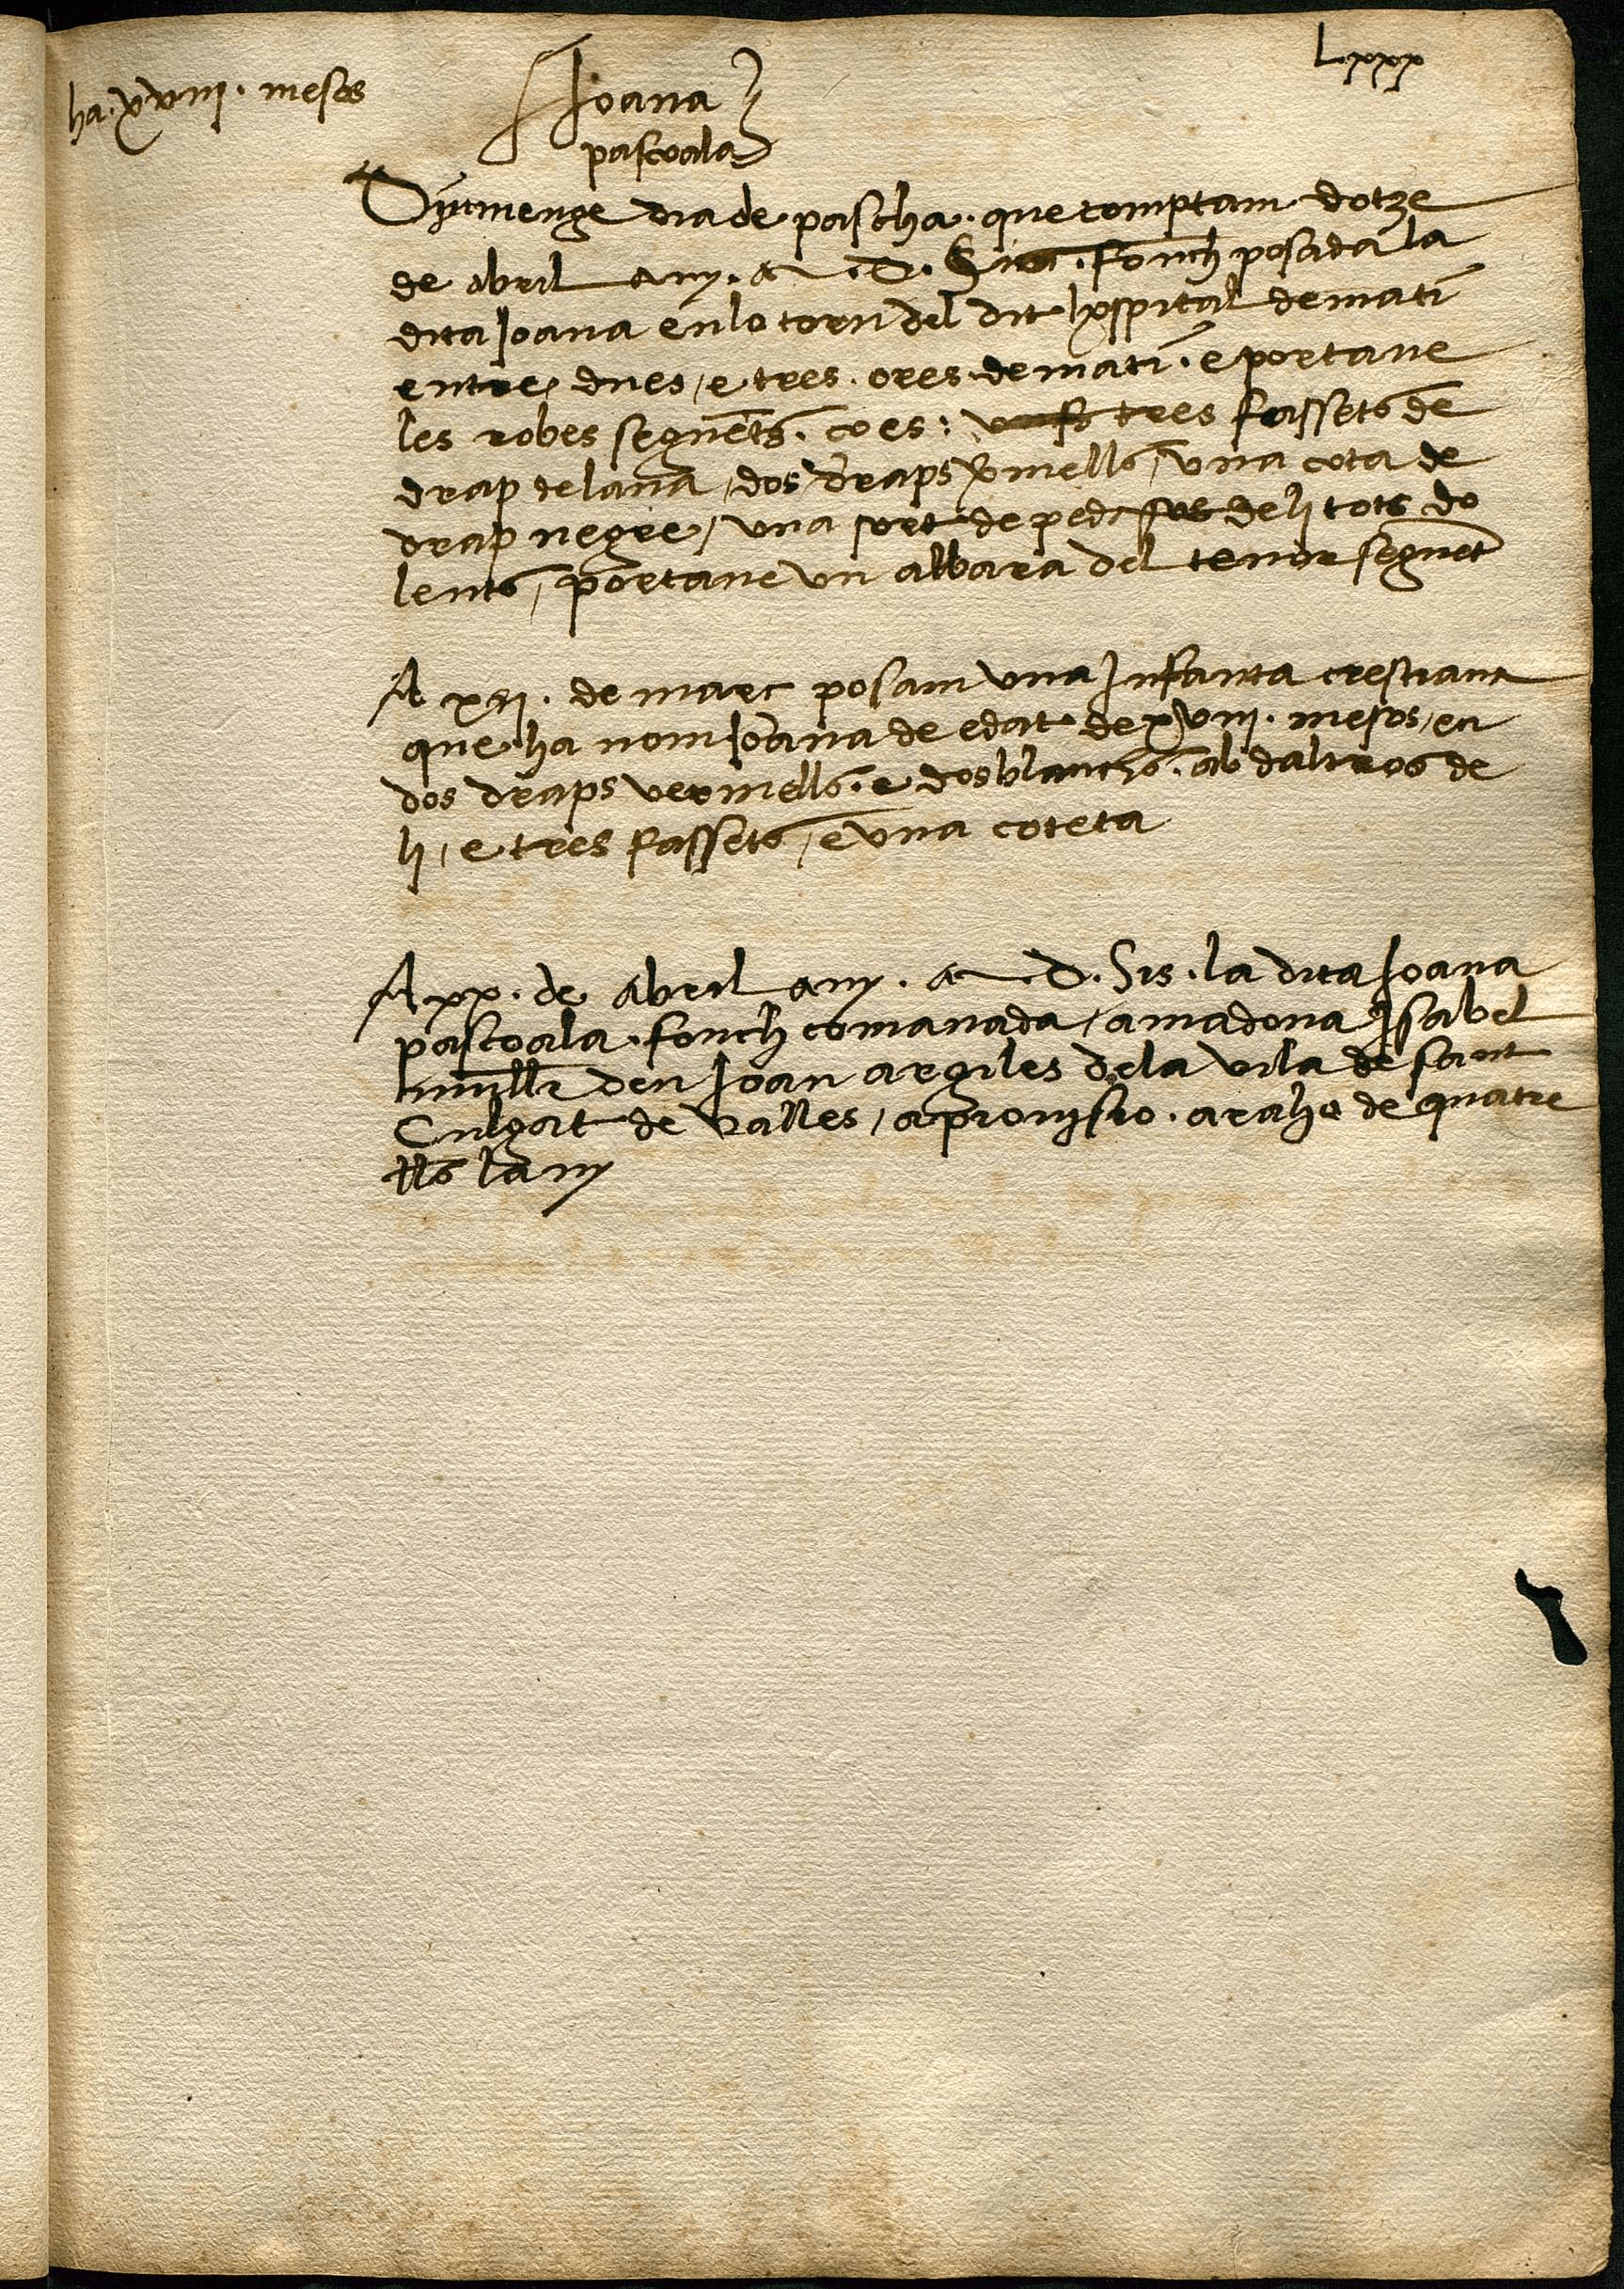 Lxxx
ha. xviii. mesos
Joana
pascoala
Dijmenge dia de pascha. que comptam dotze
de abril any. M. D. Sis. fonch posada la
dita Joana en lo torn del dit hospital de mati
entre dues / e tres. ores de mati. e portave
les robes seguēts. ço es: tres fassets de
drap de lana / dos draps v̄mells / una cota de
drap negre / una sort de pedassos de li tots do
lents / portave un albara del tenor seguēt
A xxii. de març posam una Infanta crestiana
que ha nom Joana de edat de xviii. mesos / en
dos draps vermells. e dos blanchs. ab daltros de
li / e tres fassets / e una coteta
A xx. de abril any. M. D. Sis. la dita Joana
pascoala. fonch comanada / a madona Isabel
muller den Joan argiles dela vila de sant
Culgat de Valles / a provisio. a raho de quatre
ll̄s lany